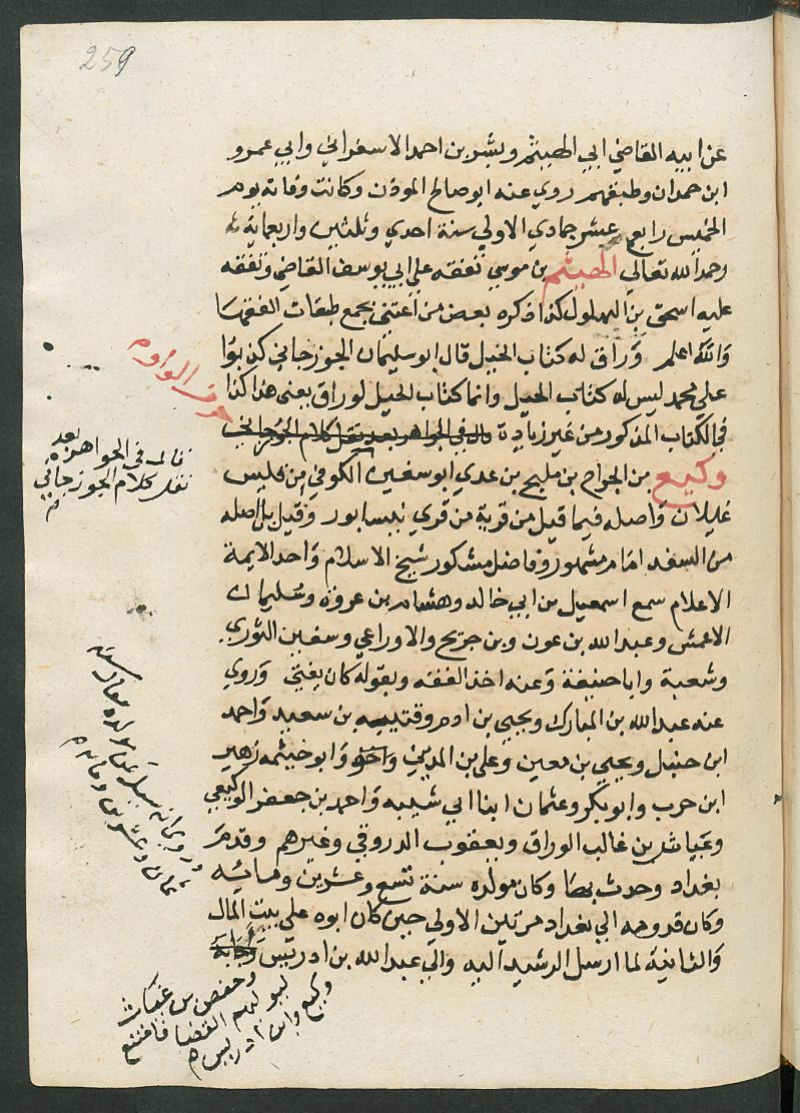 259
عن ابيه القاضي ابي الهيثم وبشر بن احمد الاسفراني وابي عمرو
ابن حمدان وطبقتهم روي عنه ابو صالح الموذن وكانت وفاته يوم
الخميس رابع عشر جمادي الاولي سنة احدي وثلثين واربعماية
رحمه الله تعالي الهيثم بن موسي تفقه علي ابي يوسف القاضي وتفقه
عليه اسحق بن البهلول كذا ذكره بعض من اعتني بجمع طبقات الفقها
والله اعلم وراق له كتاب الحيل قال ابو سليمان الجوزجاني كذبوا
علي محمد ليس له كتاب الحيل وانما كتاب الحيل لوراق يعني هذا كذا
في الكتاب المذكور من غير زيادة قال في الجواهر بعد نقل كلام الجوزجاني
حرف الواو
قال في الجواهر بعد
نقل كلام الجوزجاني
وكيع بن الجراح بن مليح بن عدي ابو سفين الكوفي من قيس
غيلان واصله فيما قيل من قرية من قري نيسابور وقيل بل اصله
من السغد امام مشهور وفاضل مشكور شيخ الاسلام واحد الايمة
الاعلام سمع اسمعيل بن ابي خالد وهشام بن عروة وسليمان
الاعمش وعبد الله بن عون وبن جريج والاوزاعي وسفين الثوري
وشعبة وابا حنيفة وعنه اخذ الفقه وبقوله كان يفتي وروي
عنه عبد الله بن المبارك ويحيي بن ادم وقتيبه بن سعيد واحمد
ابن حنبل ويحيي بن معين وعلي بن المديني وابو خيثمه زهير
ابن حرب وابو بكر وعثمان ابنا ابي شيبه واحمد بن جعفر الوكيعي
وعباش بن غالب الوراق ويعقوب الدروقي وغيرهم وقدم
بغداد وحدث بها وكان مولده سنة تسع وعشرين ومائه
وكان قدومه الي بغداد مرتين الاولي حين كان ابوه علي بيت المال
والثانية لما ارسل الرشيد اليه والي عبد الله بن ادريس
وحفص بن غياث
ليوليهم القضا فامتنع
وكيع وابن ادريس